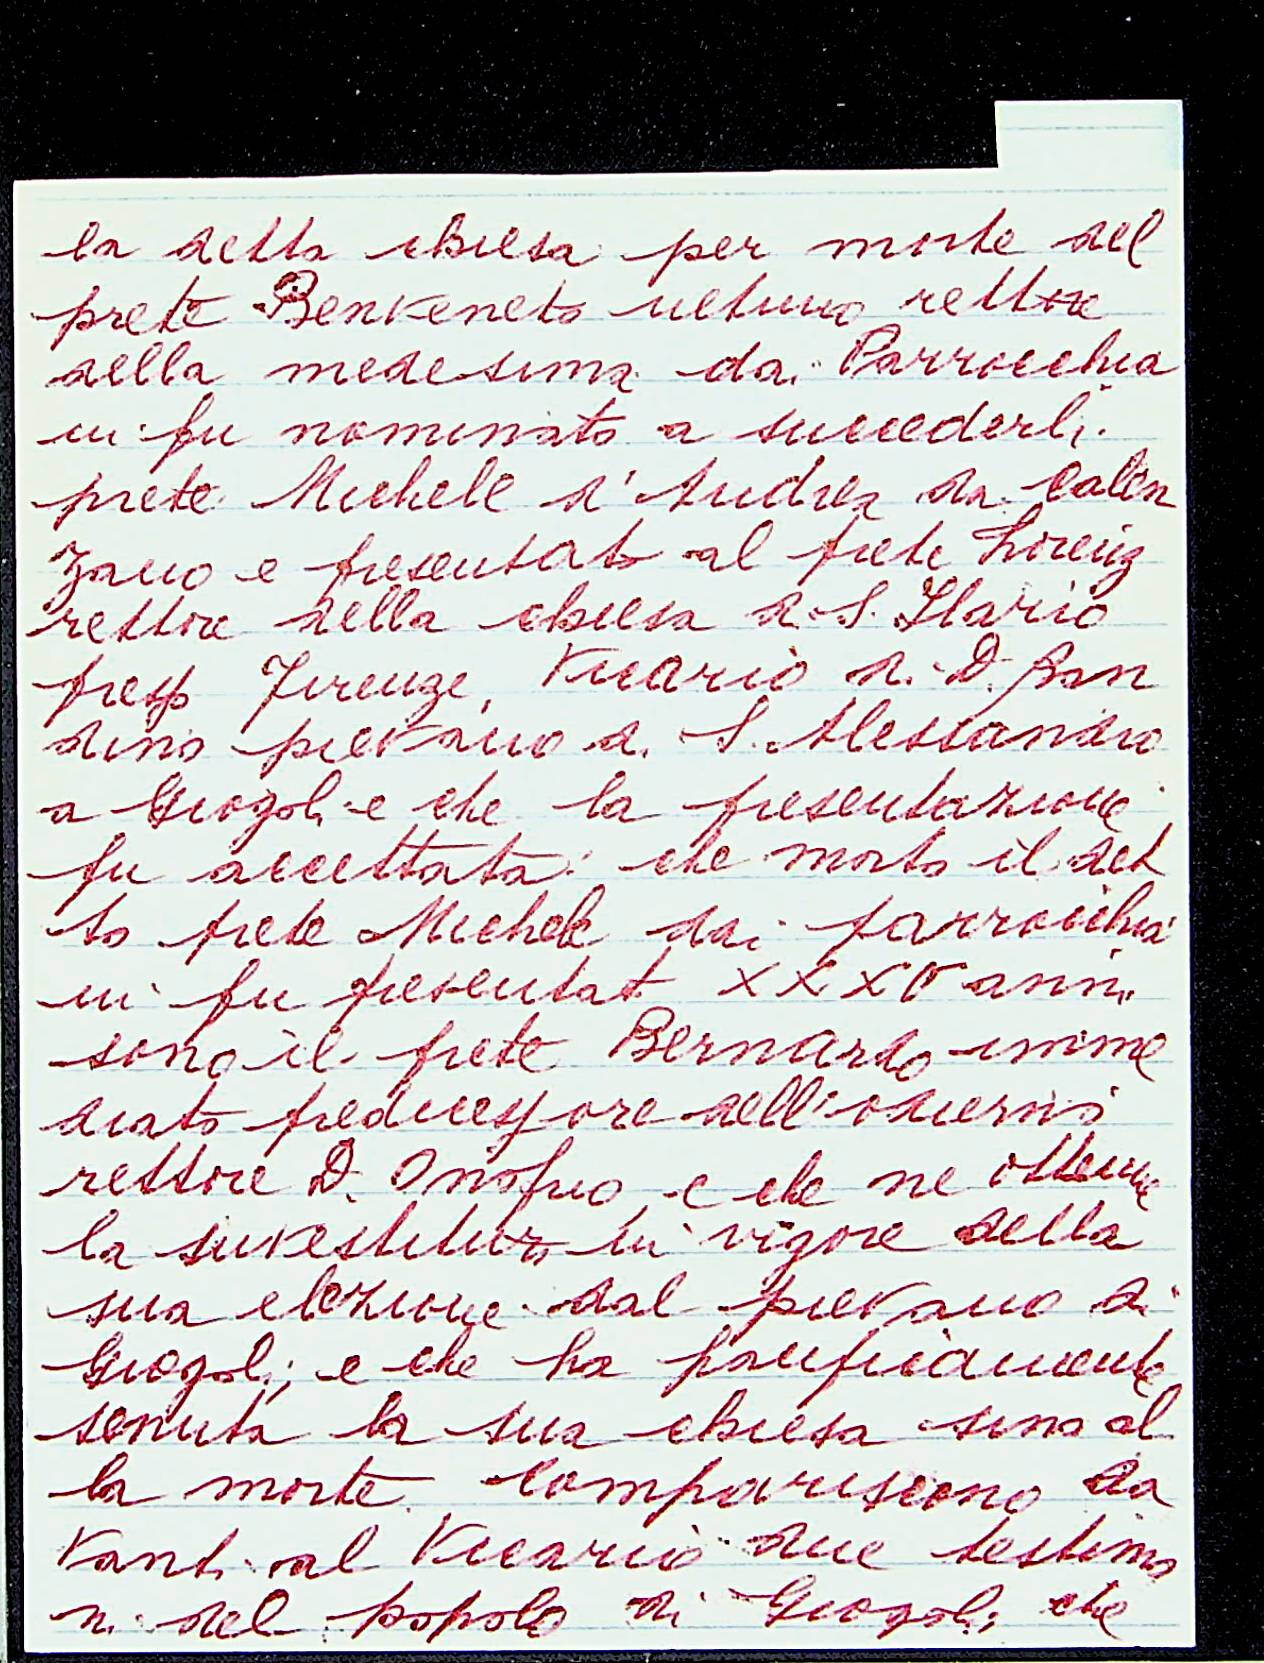 la detta chiesa per morte del
prete Benveneto ultimo rettore
della medesima dai Parrocchia
ni fu nominato a succederli
prete Michele d'Andrea da Calen
zano e presentato al prete Lorenz
rettore della chiesa di S. Ilario
presso Firenze, Vicario di D. Ban
dino pievano di S. Alessandro
a Giogoli e che la presentazione
fu accettata: che morto il det
to prete Michele dai parrocchia
ni fu presentat XXXV anni
sono il prete Bernardo imme
diato predecessore dell'odierno
rettore D. Onofrio e che ne ottenne
la investitura in vigore della
sua elezione dal pievano di
Giogoli; e che ha pacificamente
tenuta la sua chiesa sino al
la morte. Compariscono da
vanti al Vicario due testimo
ni del popolo di Giogoli, che